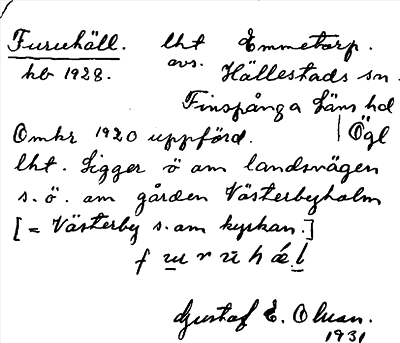 Furuhäll. lht Emmetorp.
hb 1928. avs. Hällestads sn.
Finspånga Läns hd
Omkr 1920 uppförd. Ögl
lht. Ligger ö om landsvägen
s.ö. om gården Västerbyholm
[= Västerby s. om kyrkan.]
Gustaf E. Olsson.
1931